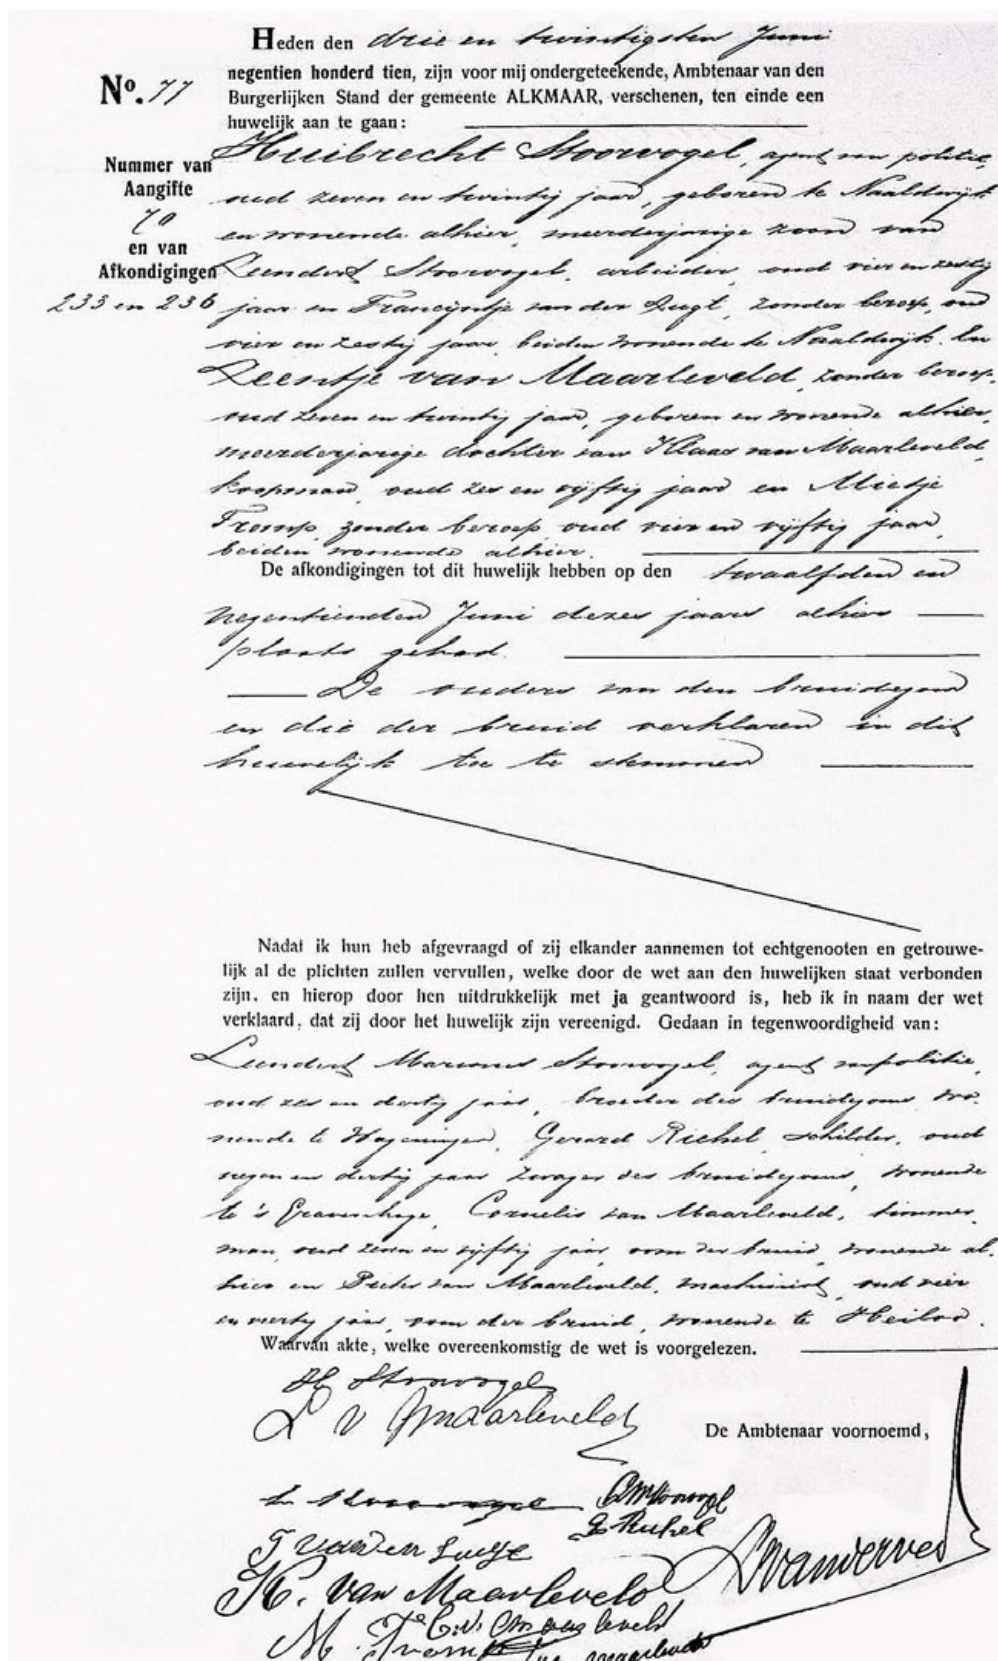 Heden den drie en twintigsten Juni
negentien honderd tien, zijn voor mij ondergeteekende, Ambtenaar van den
No. 77
Burgerlijken Stand der gemeente ALKMAAR, verschenen, ten einde een
huwelijk aan te gaan:
Nummer van
Aangifte
70
en van
Afkondigingen
233 en 236
Huibrecht Stoorvogel, agent van politie,
oud zeven en twintig jaar, geboren te Naaldwijk
en wonende alhier, meerderjarige zoon van
Leendert Stoorvogel, arbeider, oud vier en zestig
jaar en Francijntje van der Lugt, zonder beroep, oud
vier en zestig jaar, beiden wonende te Naaldwijk. En
Leentje van Maarleveld, zonder beroep,
oud zeven en twintig jaar, geboren en wonende alhier,
meerderjarige dochter van Klaas van Maarleveld,
koopman, oud zes en vijftig jaar en Mietje
Tromp, zonder beroep, oud vier en vijftig jaar,
beiden wonende alhier.
De afkondigingen tot dit huwelijk hebben op den twaalfden en
negentienden Juni dezes jaars alhier
plaats gehad.
De ouders van den bruidegom
en die der bruid verklaren in dit
huwelijk toe te stemmen
Nadat ik hun heb afgevraagd of zij elkander aannemen tot echtgenooten en getrouwe-
lijk al de plichten zullen vervullen, welke door de wet aan den huwelijken staat verbonden
zijn, en hierop door hen uitdrukkelijk met ja geantwoord is, heb ik in naam der wet
verklaard, dat zij door het huwelijk zijn vereenigd. Gedaan in tegenwoordigheid van:
Leendert Marinus Stoorvogel, agent van politie,
oud zes en dertig jaar, broeder des bruidegoms, wo-
nende te Wageningen, Gerard Richel, schilder, oud
negen en dertig jaar, zwager des bruidegoms, wonende
te 's Gravenhage, Cornelis van Maarleveld, timmer-
man, oud zeven en vijftig jaar, oom der bruid, wonende al-
hier en Pieter van Maarleveld, machinist, oud vier
en veertig jaar, oom der bruid, wonende te Heiloo.
Waarvan akte, welke overeenkomstig de wet is voorgelezen.
H Stoorvogel
L v Maarleveld
De Ambtenaar voornoemd,
L Stoorvogel
LM Stoorvogel
G Richel
F van der Lugt
K. van Maarleveld
C. v. Maarleveld
M. Tromp